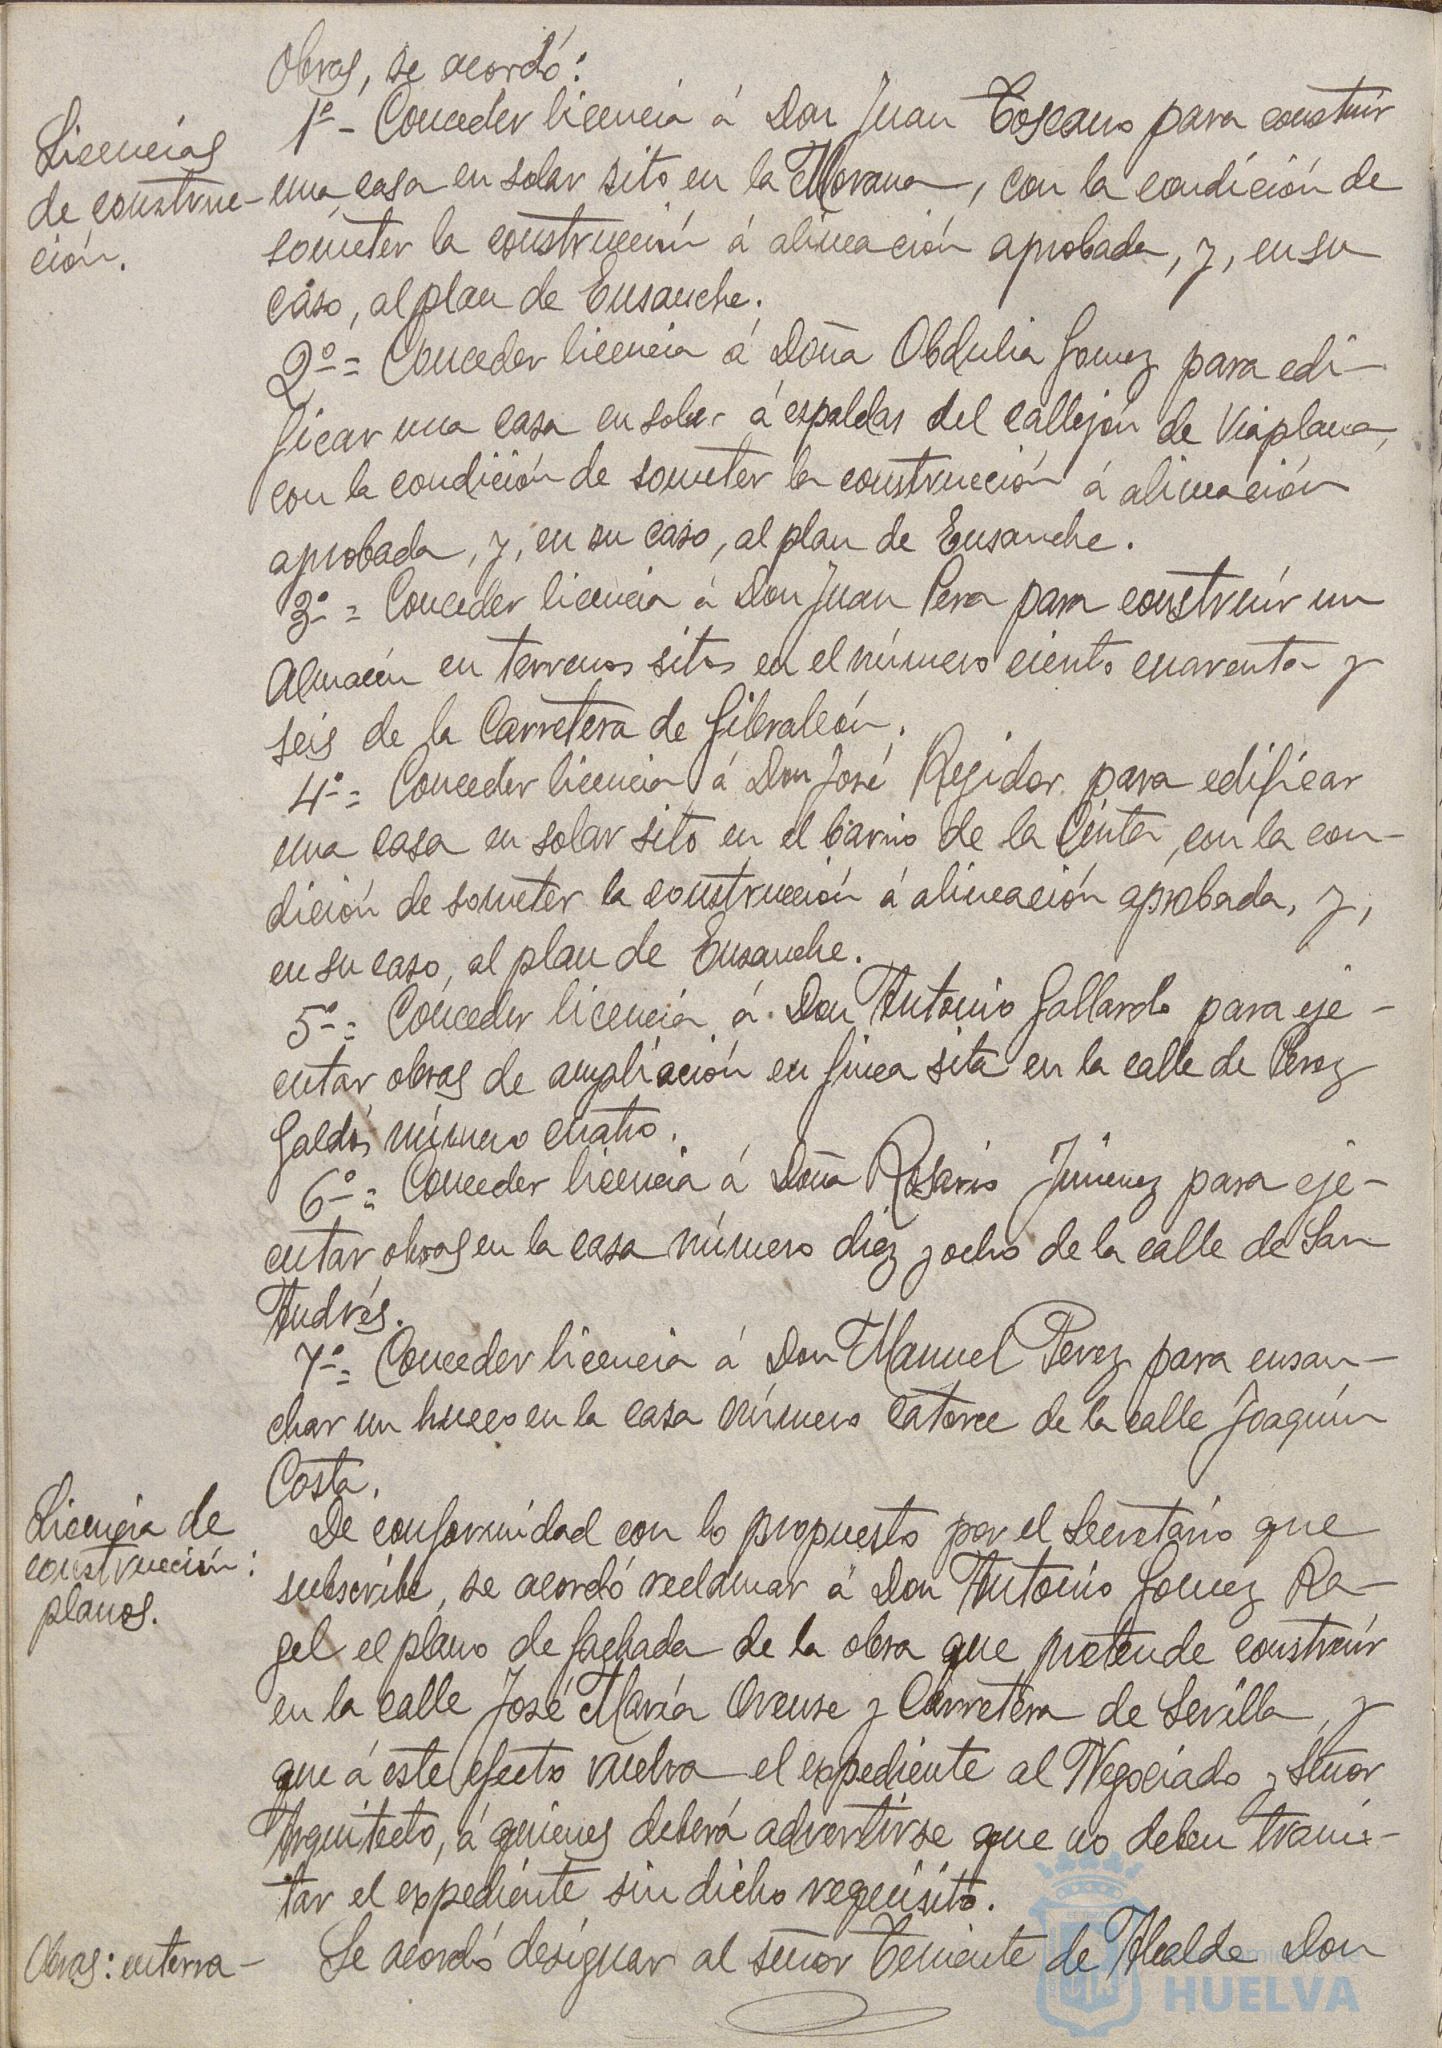 Obras, se acordó:
Licencias
de construc-
ción.
1º- Conceder licencia á Don Juan Toscano para construir
una casa en solar sito en la Morana, con la condición de
someter la construcción á alineación aprobada, y, en su
caso, al plan de Ensanche.
2º= Conceder licencia á Doña Obdulia Gomez para edi-
ficar una casa en solar á espaldas del callejón de Viaplana,
con la condición de someter la construcción á alineación
aprobada, y, en su caso, al plan de Ensanche.
3º= Conceder licencia á Don Juan Pera para construir un
Almacén en terrenos sitos en el número ciento cuarenta y
seis de la Carretera de Gibraleón.
4º= Conceder licencia á Don José Regidor para edificar
una casa en solar sito en el barrio de la Cinta, con la con-
dición de someter la construcción á alineación aprobada, y,
en su caso, al plan de Ensanche.
5º= Conceder licencia á Don Antonio Gallardo para eje-
cutar obras de ampliación en finca sita en la calle de Perez
Galdós número cuatro.
6º= Conceder licencia á Doña Rosario Jimenez para eje-
cutar obras en la casa número diez y ocho de la calle de San
Andrés.
7º= Conceder licencia á Don Manuel Perez para ensan-
char un hueco en la casa número catorce de la calle Joaquín
Costa.
Licencia de
construcción:
planos.
De conformidad con lo propuesto por el Secretario que
subscribe, se acordó reclamar á Don Antonio Gomez Ra-
gel el plano de fachada de la obra que pretende construir
en la calle José María Orense y Carretera de Sevilla, y
que á este efecto vuelva el expediente al Negociado y Señor
Arquitecto, á quienes deberá advertirse que no deben trami-
tar el expediente sin dicho requisito.
Obras: enterra-
Se acordó designar al señor Teniente de Alcalde Don
HUELVA